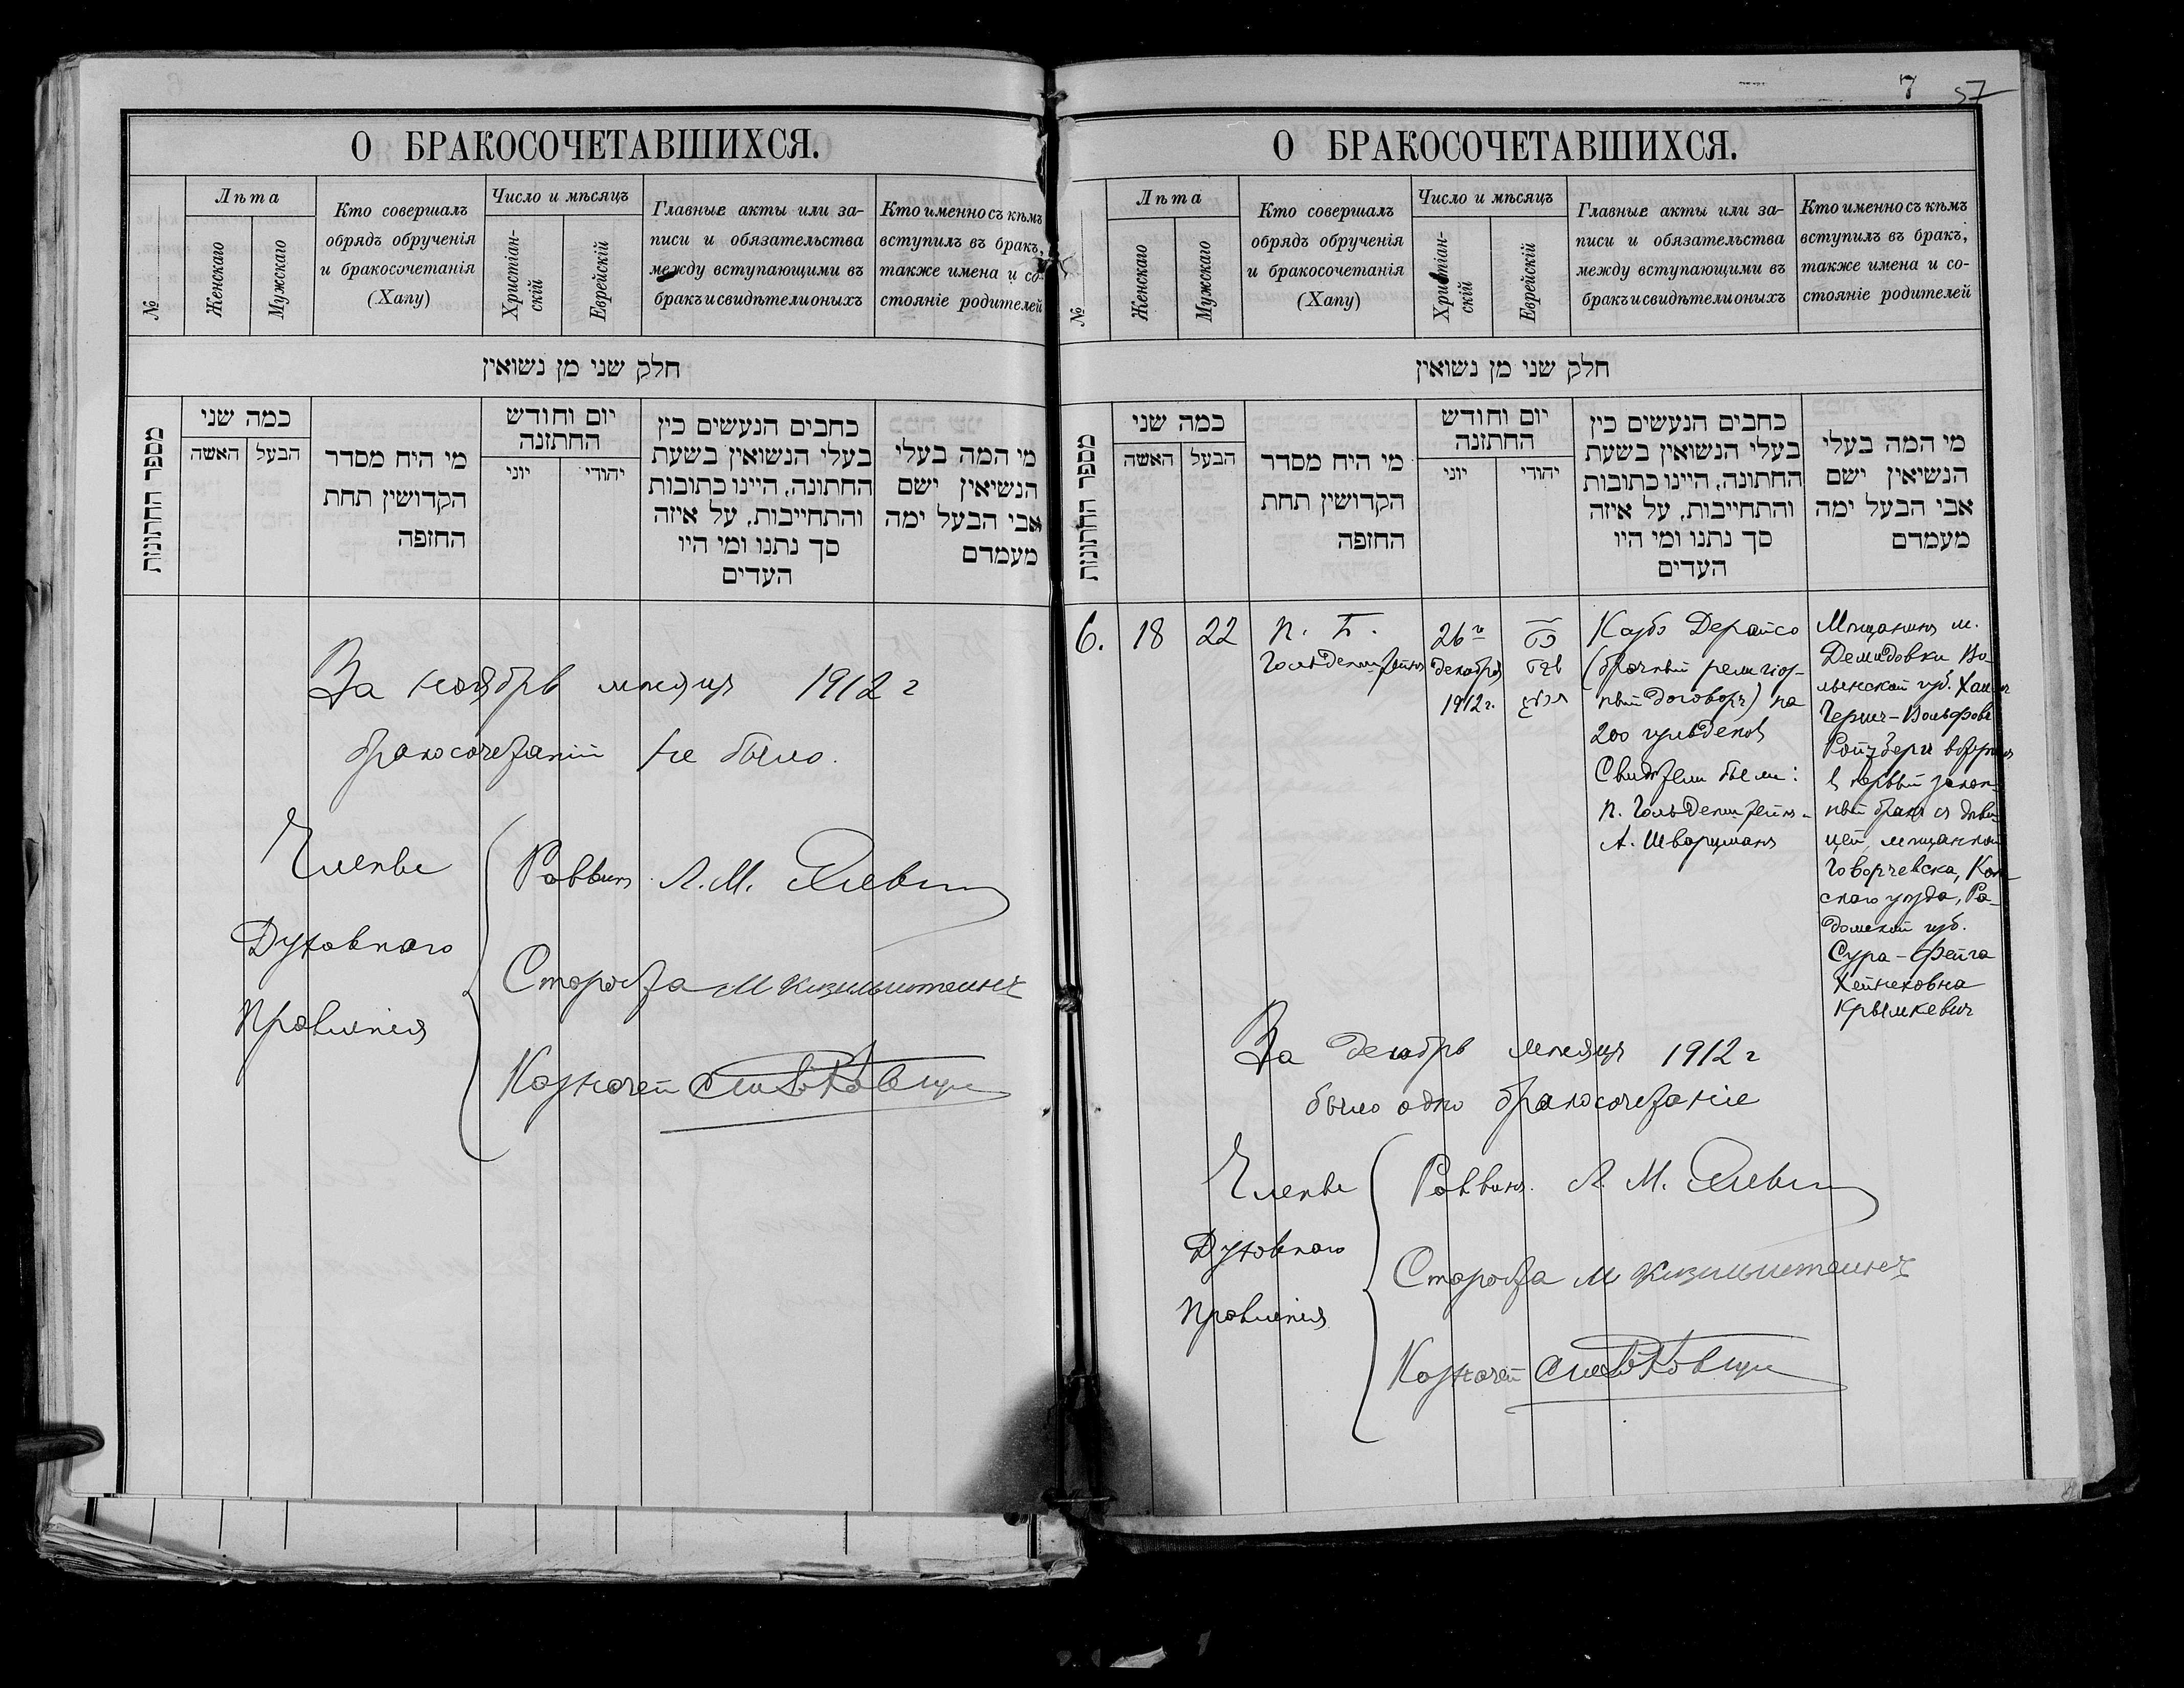 О БРАКОСОЧЕТАВШИХСЯ.
№
Лѣта
Женскаго
Мужскаго
Кто совершалъ
обрядъ обрученія
и бракосочетанія
(Хапу)
Число и мѣсяцъ
Христіан-
скій
Еврейскій
Главные акты или за-
писи и обязательства
между вступающими въ
бракъ и свидѣтели оныхъ
Кто именно съ кѣмъ
вступилъ въ бракъ,
также имена и со-
стояніе родителей
חלק שני מן נשואין
מספר החתונות
כמה שני
האשה
הבעל
מי היח מסדר
הקדושין תחת
החזפה
יום וחודש
החתזנה
יוני
יהודי
כחבים הנעשים כין
בעלי הנשואין בשעת
החתונה, היינו כתובות
והתחייבות, על איזה
סך נתנו ומי היו
העדים
מי המה בעלי
הנשיאין ישם
אבי הבעל ימה
מעמדם
За ноябрь мѣсяцъ 1912 г
бракосочетаній не было.
Члены
Духовнаго
Правленія
Раввинъ Л. М.
Староста М
Казначей
7 57
О БРАКОСОЧЕТАВШИХСЯ.
№
Лѣта
Женскаго
Мужскаго
Кто совершалъ
обрядъ обрученія
и бракосочетанія
(Хапу)
Число и мѣсяцъ
Христіан-
скій
Еврейскій
Главные акты или за-
писи и обязательства
между вступающими въ
бракъ и свидѣтели оныхъ
Кто именно съ кѣмъ
вступилъ въ бракъ,
также имена и со-
стояніе родителей
חלק שני מן נשואין
מספר החתונות
כמה שני
האשה
הבעל
מי היח מסדר
הקדושין תחת
החזפה
יום וחודש
החתזנה
יוני
יהודי
כחבים הנעשים כין
בעלי הנשואין בשעת
החתונה, היינו כתובות
והתחייבות, על איזה
סך נתנו ומי היו
העדים
מי המה בעלי
הנשיאין ישם
אבי הבעל ימה
מעמדם
6. 18 22
П. Б.
Гольденштейнъ
26го
декабря
1912 г.
Дерайсо
(брачный религіоз-
ный договоръ) на
200 гульденовъ
Свидѣтели были:
П. Гольденштейнъ
А. Шварцманъ
Мѣщанинъ м.
Демидовки Во-
лынской губ.
Гершъ-Вольфовъ
Ройзбергъ вступилъ
въ первый закон-
ный бракъ съ дѣви-
цей, мѣщанкой
Говорчевска, Кон-
скаго уѣзда, Ра-
домской губ.
Сура-Фейга
Хейнеховна
Крымкевичъ
За декабрь мѣсяцъ 1912 г
было одно бракосочетаніе
Члены
Духовнаго
Правленія
Раввинъ Л. М.
Староста М
Казначей